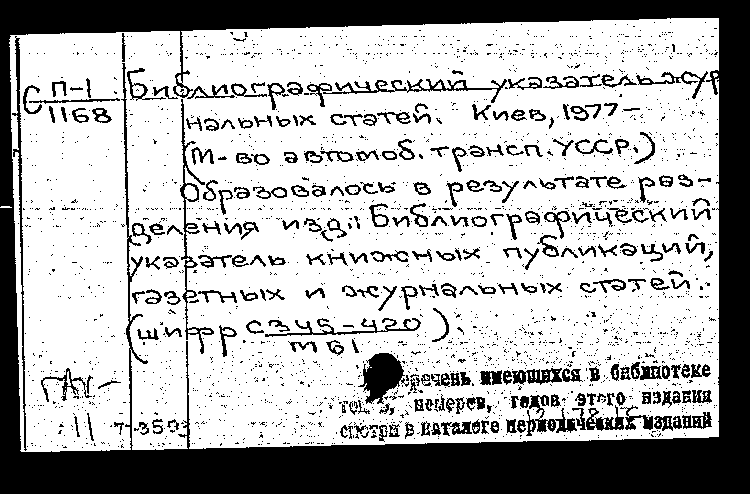 С П-1 Библиографический указатель жур
1168 нальных статей. Киев, 1977-
(М-во автомоб. трансп. УССР.)
Образовалось в результате раз-
деления изд.: Библиографический
указатель книжных публикаций,
газетных и журнальных статей.
(шифр С345-420).
м61
Перечень имеющихся в библиотеке
томов, номеров, годов этого издания
7-3503 смотри в каталоге периодических изданий